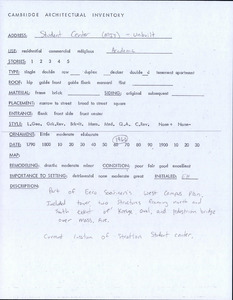 CAMBRIDGE ARCHITECTURAL INVENTORY
ADDRESS: Student Center - unbuilt
USE: residential commercial religious Academic
STORIES: 1 2 3 4 5
TYPE: single double row duplex decker double_d tenement apartment
ROOF: hip gable front gable flank mansard flat
MATERIAL: frame brick SIDING: original subsequent
PLACEMENT: narrow to street broad to street square
ENTRANCE: flank front side front center
ORNAMENT: little moderate elaborate
MAP:
REMODELING: drastic moderate minor CONDITION: poor fair good excellent
IMPORTANCE TO SETTING: detrimental none moderate great INITIALED:
DESCRIPTION:
Part of Eero Saarinen's West Campus Plan.
Included four two structures framing north and
south east of Kresge oval, and pedestrian bridge
over Mass. Ave.
Current location of Stratton Student Center.